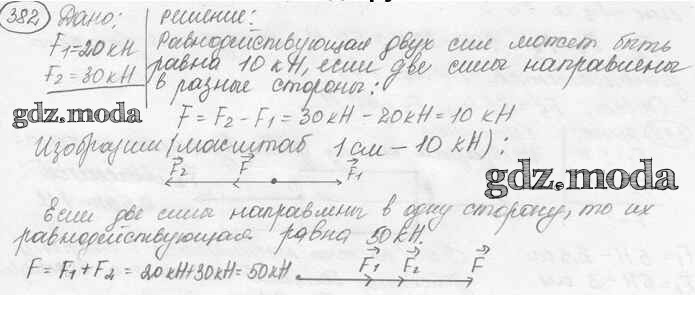 382 Дано:
F₁=20кН
F₂=30кН
gdz.moda
решение:
Равнодействующая двух сил может быть
равна 10 кН, если две силы направлены
в разные стороны:
F = F₂ - F₁ = 30кН - 20кН = 10 кН
Изобразим (масштаб 1 см - 10 кН):
F₂ F F₁
gdz.moda
Если две силы направлены в одну сторону, то их
равнодействующая равна 50кН.
F = F₁ + F₂ = 20кН+30кН = 50кН
F₁ F₂ F